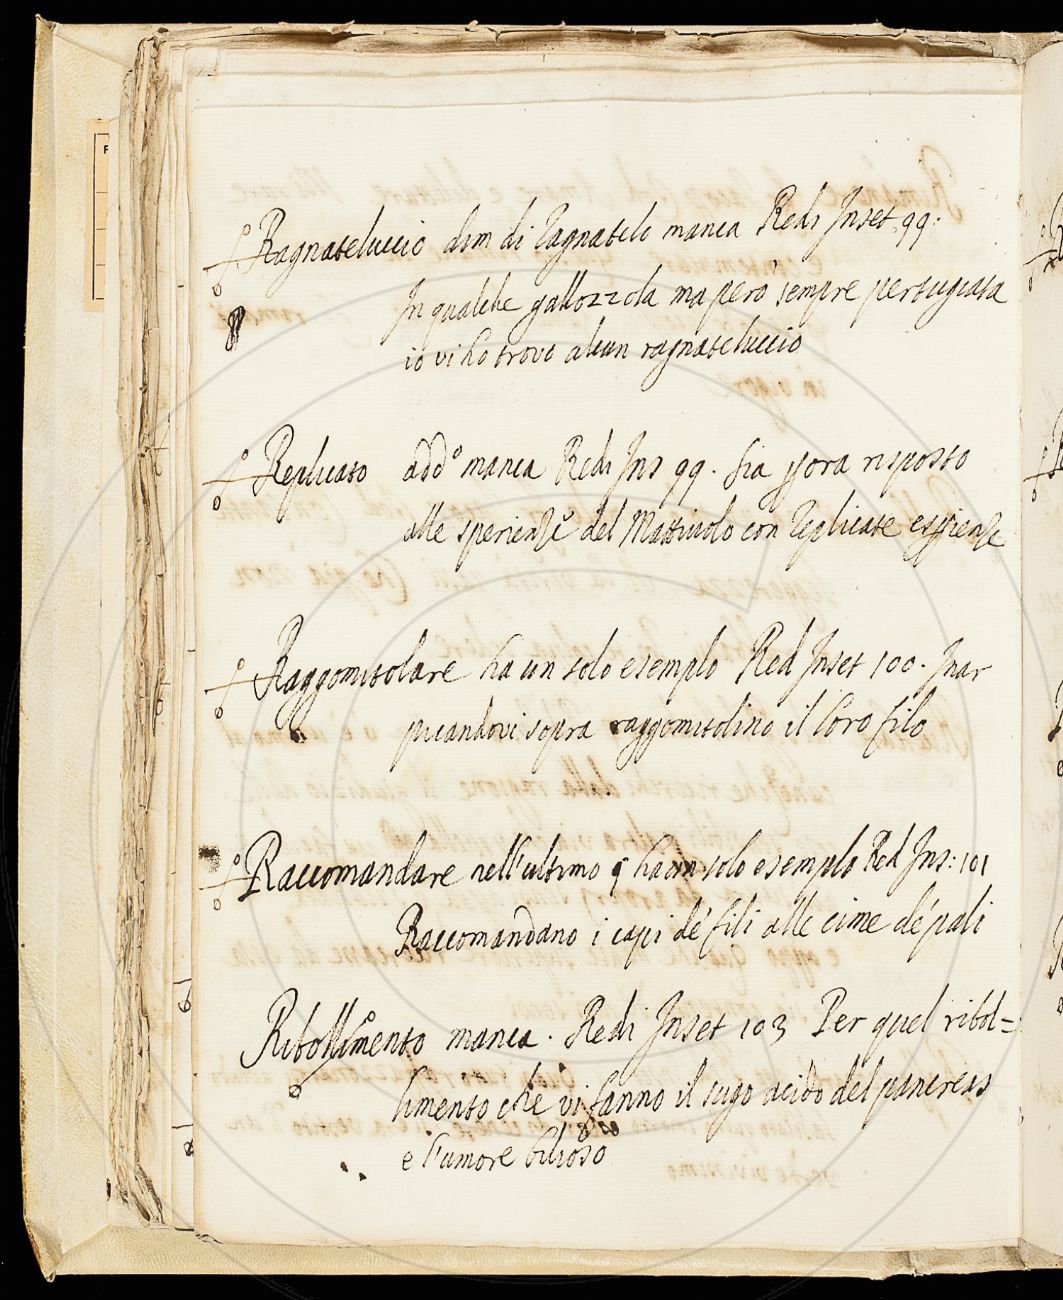 Ragnateluccio dim di Ragnatelo manca Redi Inset 99.
In qualche gallozzola ma però sempre pertugiata
io vi ho trovo alcun ragnateluccio
Replicato add.o manca Redi Ins 99. sia p ora risposto
alle sperienze del Mattiuolo con Replicate esperienze
Raggomitolare ha un solo esempio Red Inset 100. Inar
picandovi sopra raggomitolino il loro filo
Raccomandare nell'ultimo § ha un solo esempio Red Ins: 101
Raccomandano i capi de' fili alle cime de' pali
Ribollimento manca. Redi Inset 103 Per quel ribol=
limento che vi fanno il sugo acido del pancreas
e l'umore bilioso